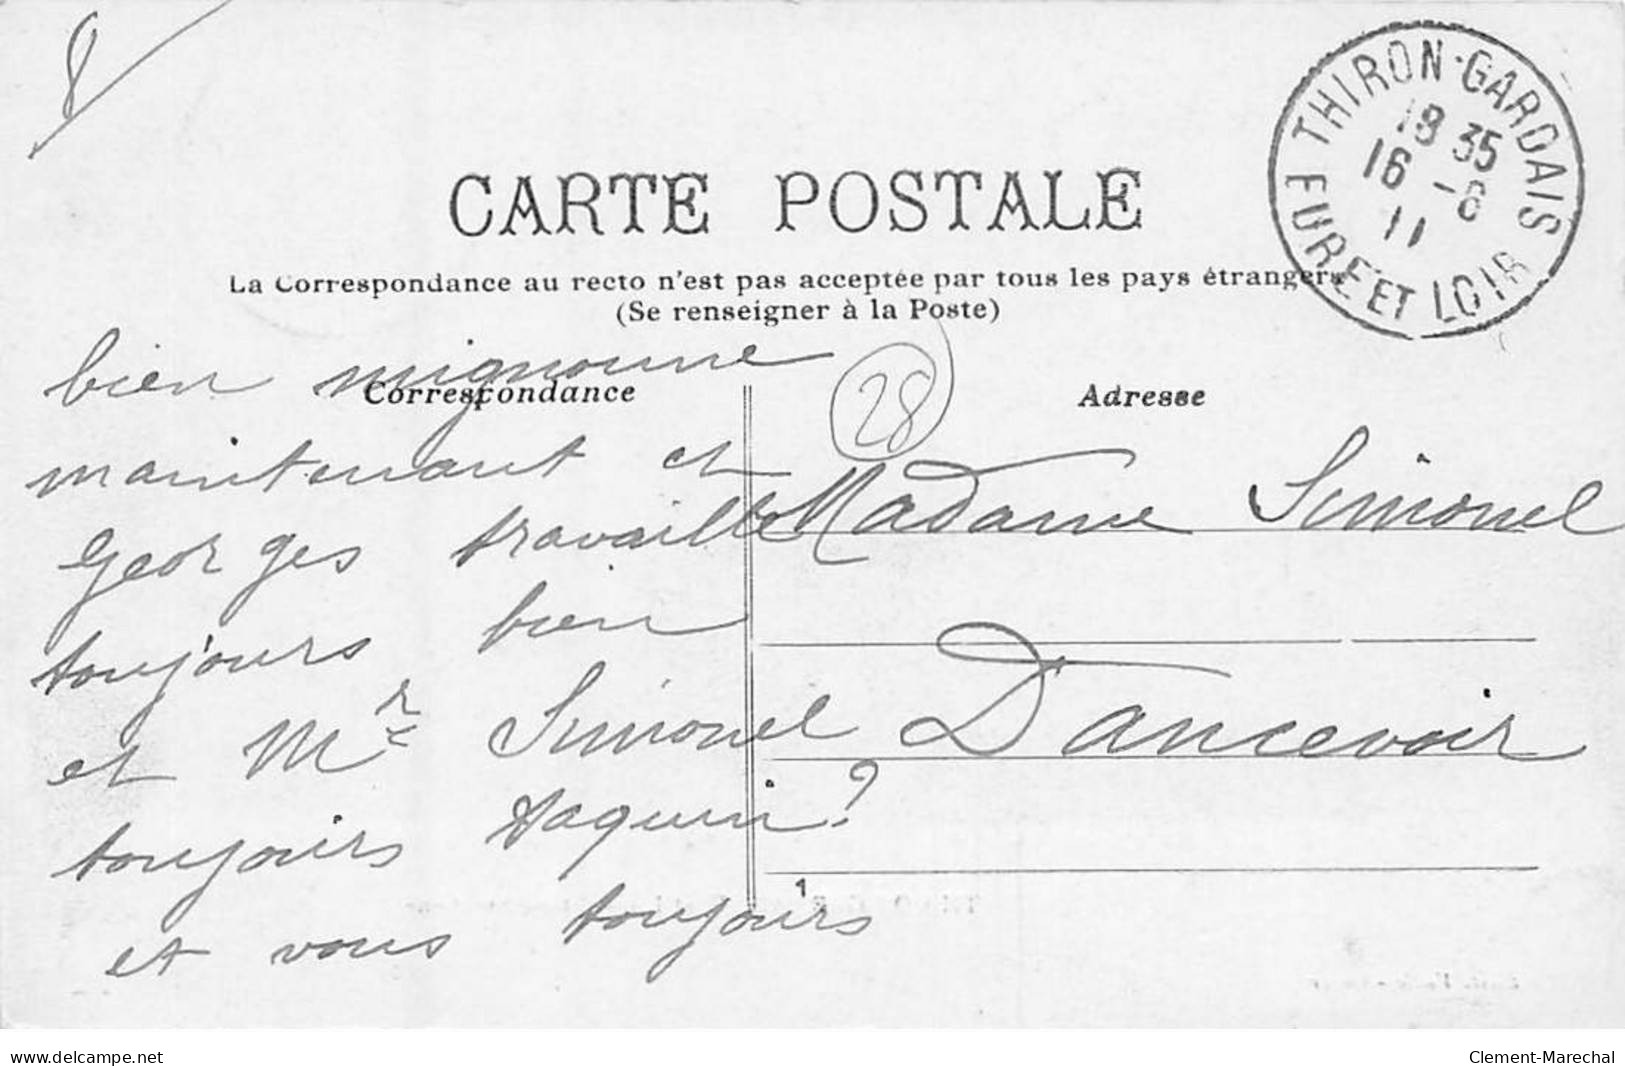 8
THIRON-GARDAIS
18 35
16 -6
11
EURE ET LOIR
CARTE POSTALE
La Correspondance au recto n'est pas acceptée par tous les pays étrangers
(Se renseigner à la Poste)
Correspondance
Adresse
28
bien mignonne
maintenant et
Georges travaille
toujours bien
et Mr Simonel
toujours taquin ?
et vous toujours
Madame Simonel
Dancevoir
1
www.delcampe.net
Clement-Marechal